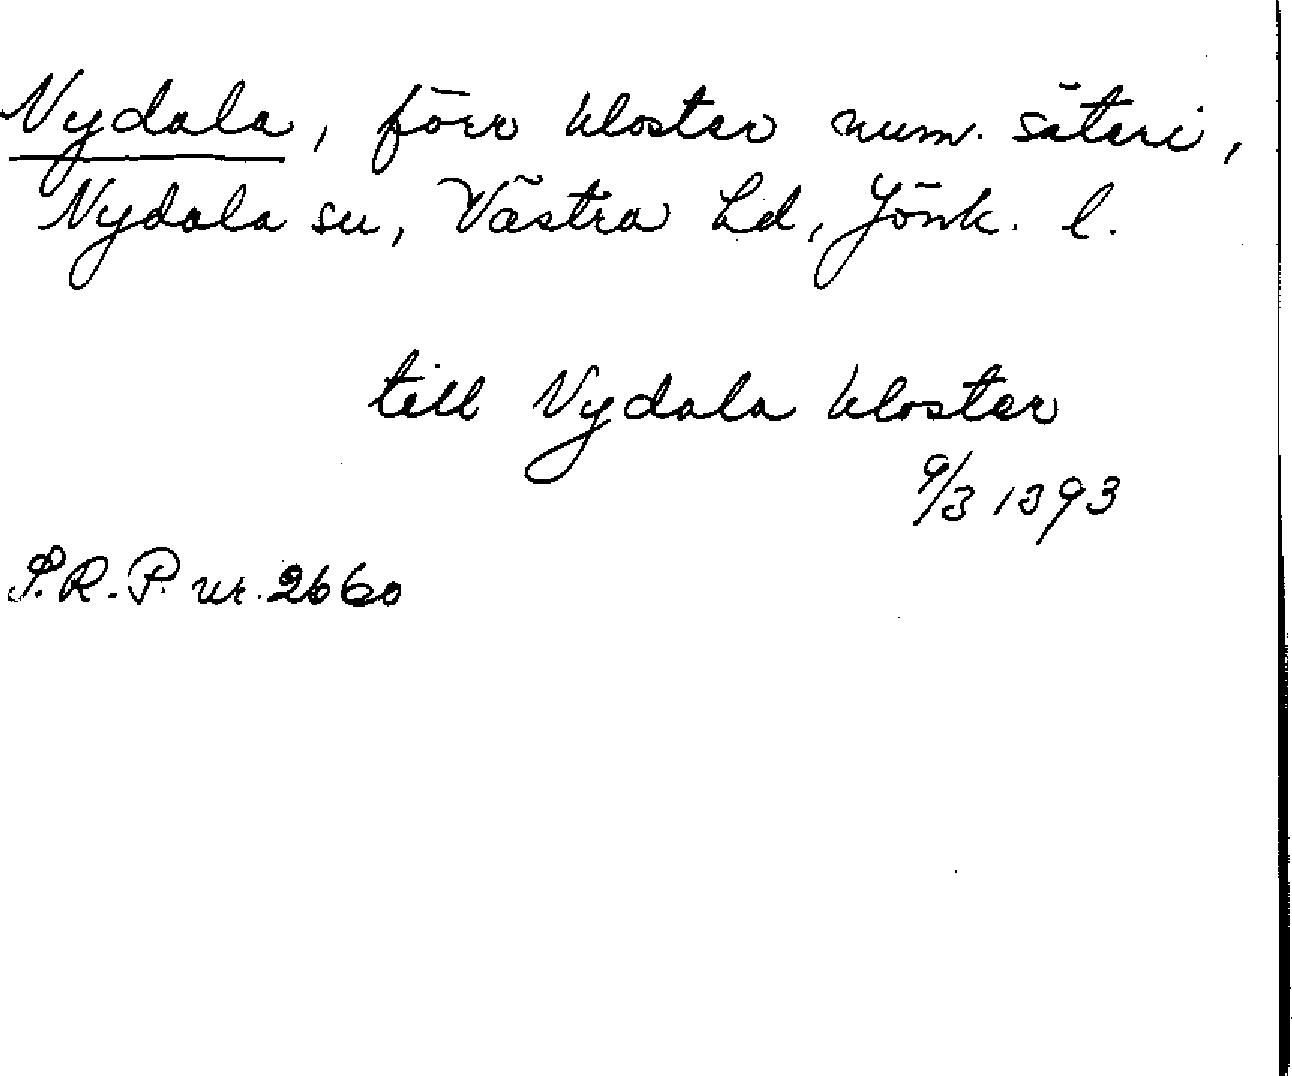 Nydala, förr kloster num. säteri,
Nydala sn, Västra hd, Jönk. l.
till Nydala kloster
9/3 1393
S.R.-P. nr. 2660